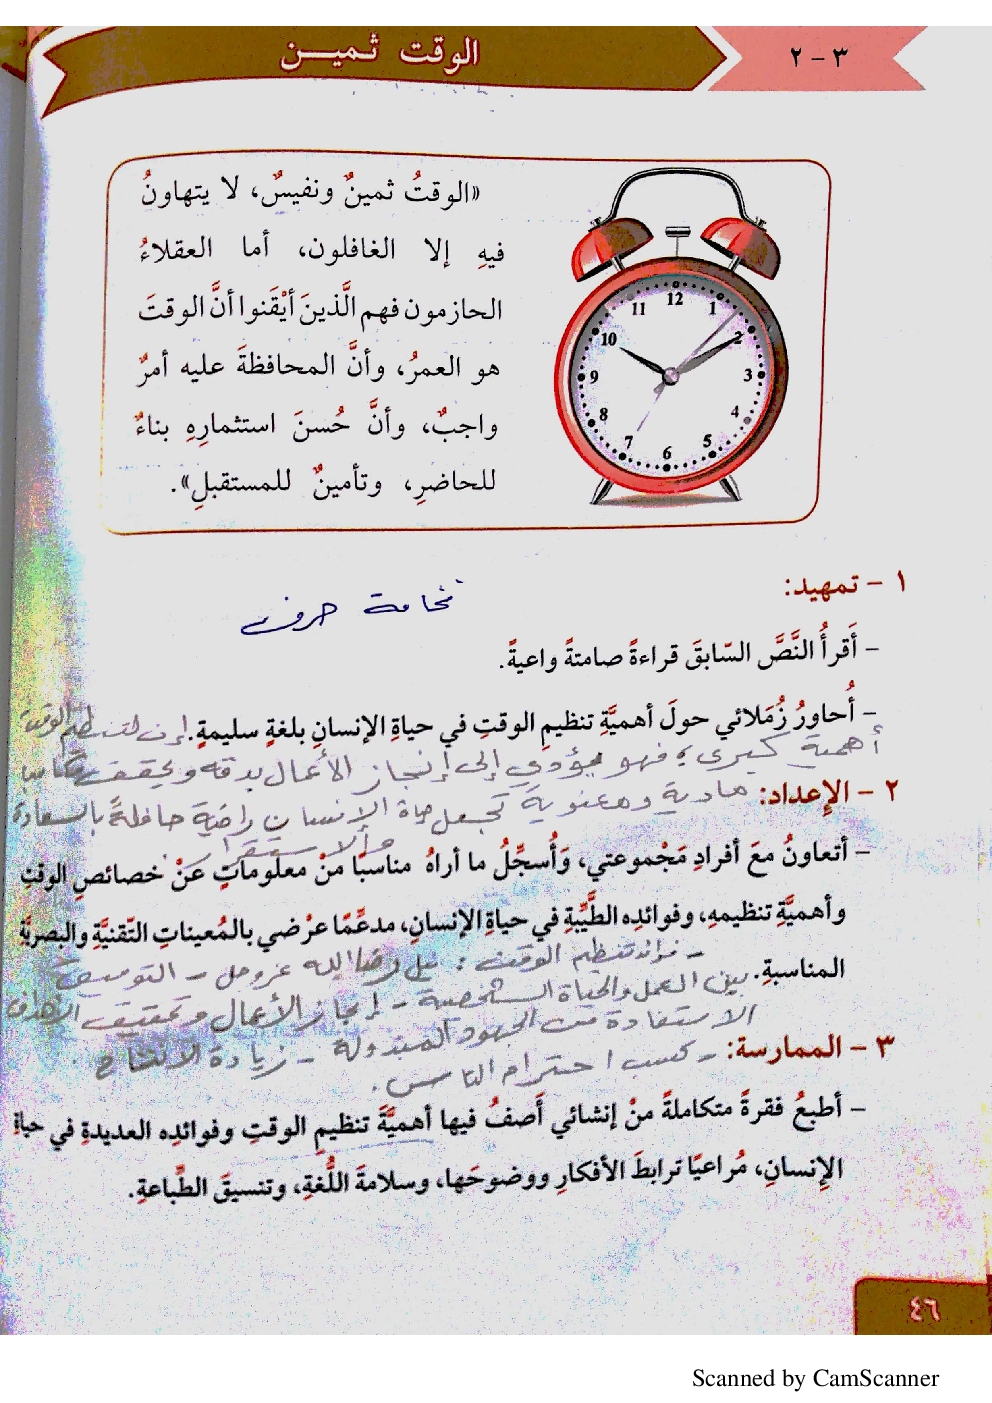 ٣ - ٢
الوقت ثمين
«الوقتُ ثمينٌ ونفيسٌ، لا يتهاونُ
فيهِ إلا الغافلون، أما العقلاءُ
الحازمون فهم الَّذينَ أيْقَنوا أنَّ الوقتَ
هو العمرُ، وأنَّ المحافظةَ عليه أمرٌ
واجبٌ، وأنَّ حُسنَ استثمارِهِ بناءٌ
للحاضرِ، وتأمينٌ للمستقبلِ».
12
1
2
3
4
5
6
7
8
9
10
11
١ - تمهيد:
فخامة حرف
- أَقرأُ النَّصَّ السّابقَ قراءةً صامتةً واعيةً.
- أُحاورُ زُمَلائي حولَ أهميَّةِ تنظيمِ الوقتِ في حياةِ الإنسانِ بلغةٍ سليمةٍ. إن لتنظيم الوقت
أهمية كبرى؛ فهو يؤدي إلى إنجاز الأعمال بدقه ويحقق مكاسبا
٢ - الإعداد: مادية ومعنوية تجعل حياة الإنسان راضية حافلةً بالسعادة
والاستقرار.
- أتعاونُ معَ أفرادِ مَجْموعتي، وَأُسجِّلُ ما أراهُ مناسبًا مِنْ معلوماتٍ عَنْ خصائصِ الوقتِ
وأهميَّةِ تنظيمِهِ، وفوائدِه الطَّيِّبةِ في حياةِ الإنسانِ، مدعِّمًا عرْضي بالمُعيناتِ التّقنيَّةِ والبصريَّةِ
المناسبةِ. - فوائد تنظيم الوقت: نيل رضا الله عز وجل - التوفيق
بين العمل والحياة الشخصية - إنجاز الأعمال وتحقيق الأهداف
الاستفادة من الجهود المبذولة - زيادة الانتاج.
٣ - الممارسة: - كسب احترام الناس.
- أطبعُ فقرةً متكاملةً منْ إنشائي أَصفُ فيها أهميَّةَ تنظيمِ الوقتِ وفوائدِه العديدةِ في حياةِ
الإنسانِ، مُراعيًا ترابطَ الأفكارِ ووضوحَها، وسلامةَ اللُّغةِ، وتنسيقَ الطِّباعةِ.
٤٦
Scanned by CamScanner